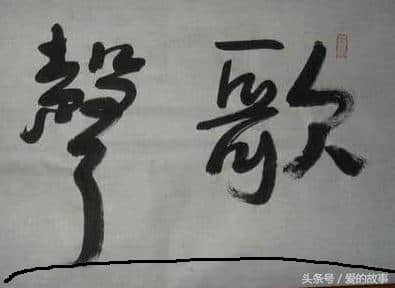 歌聲
头条号/爱的故事